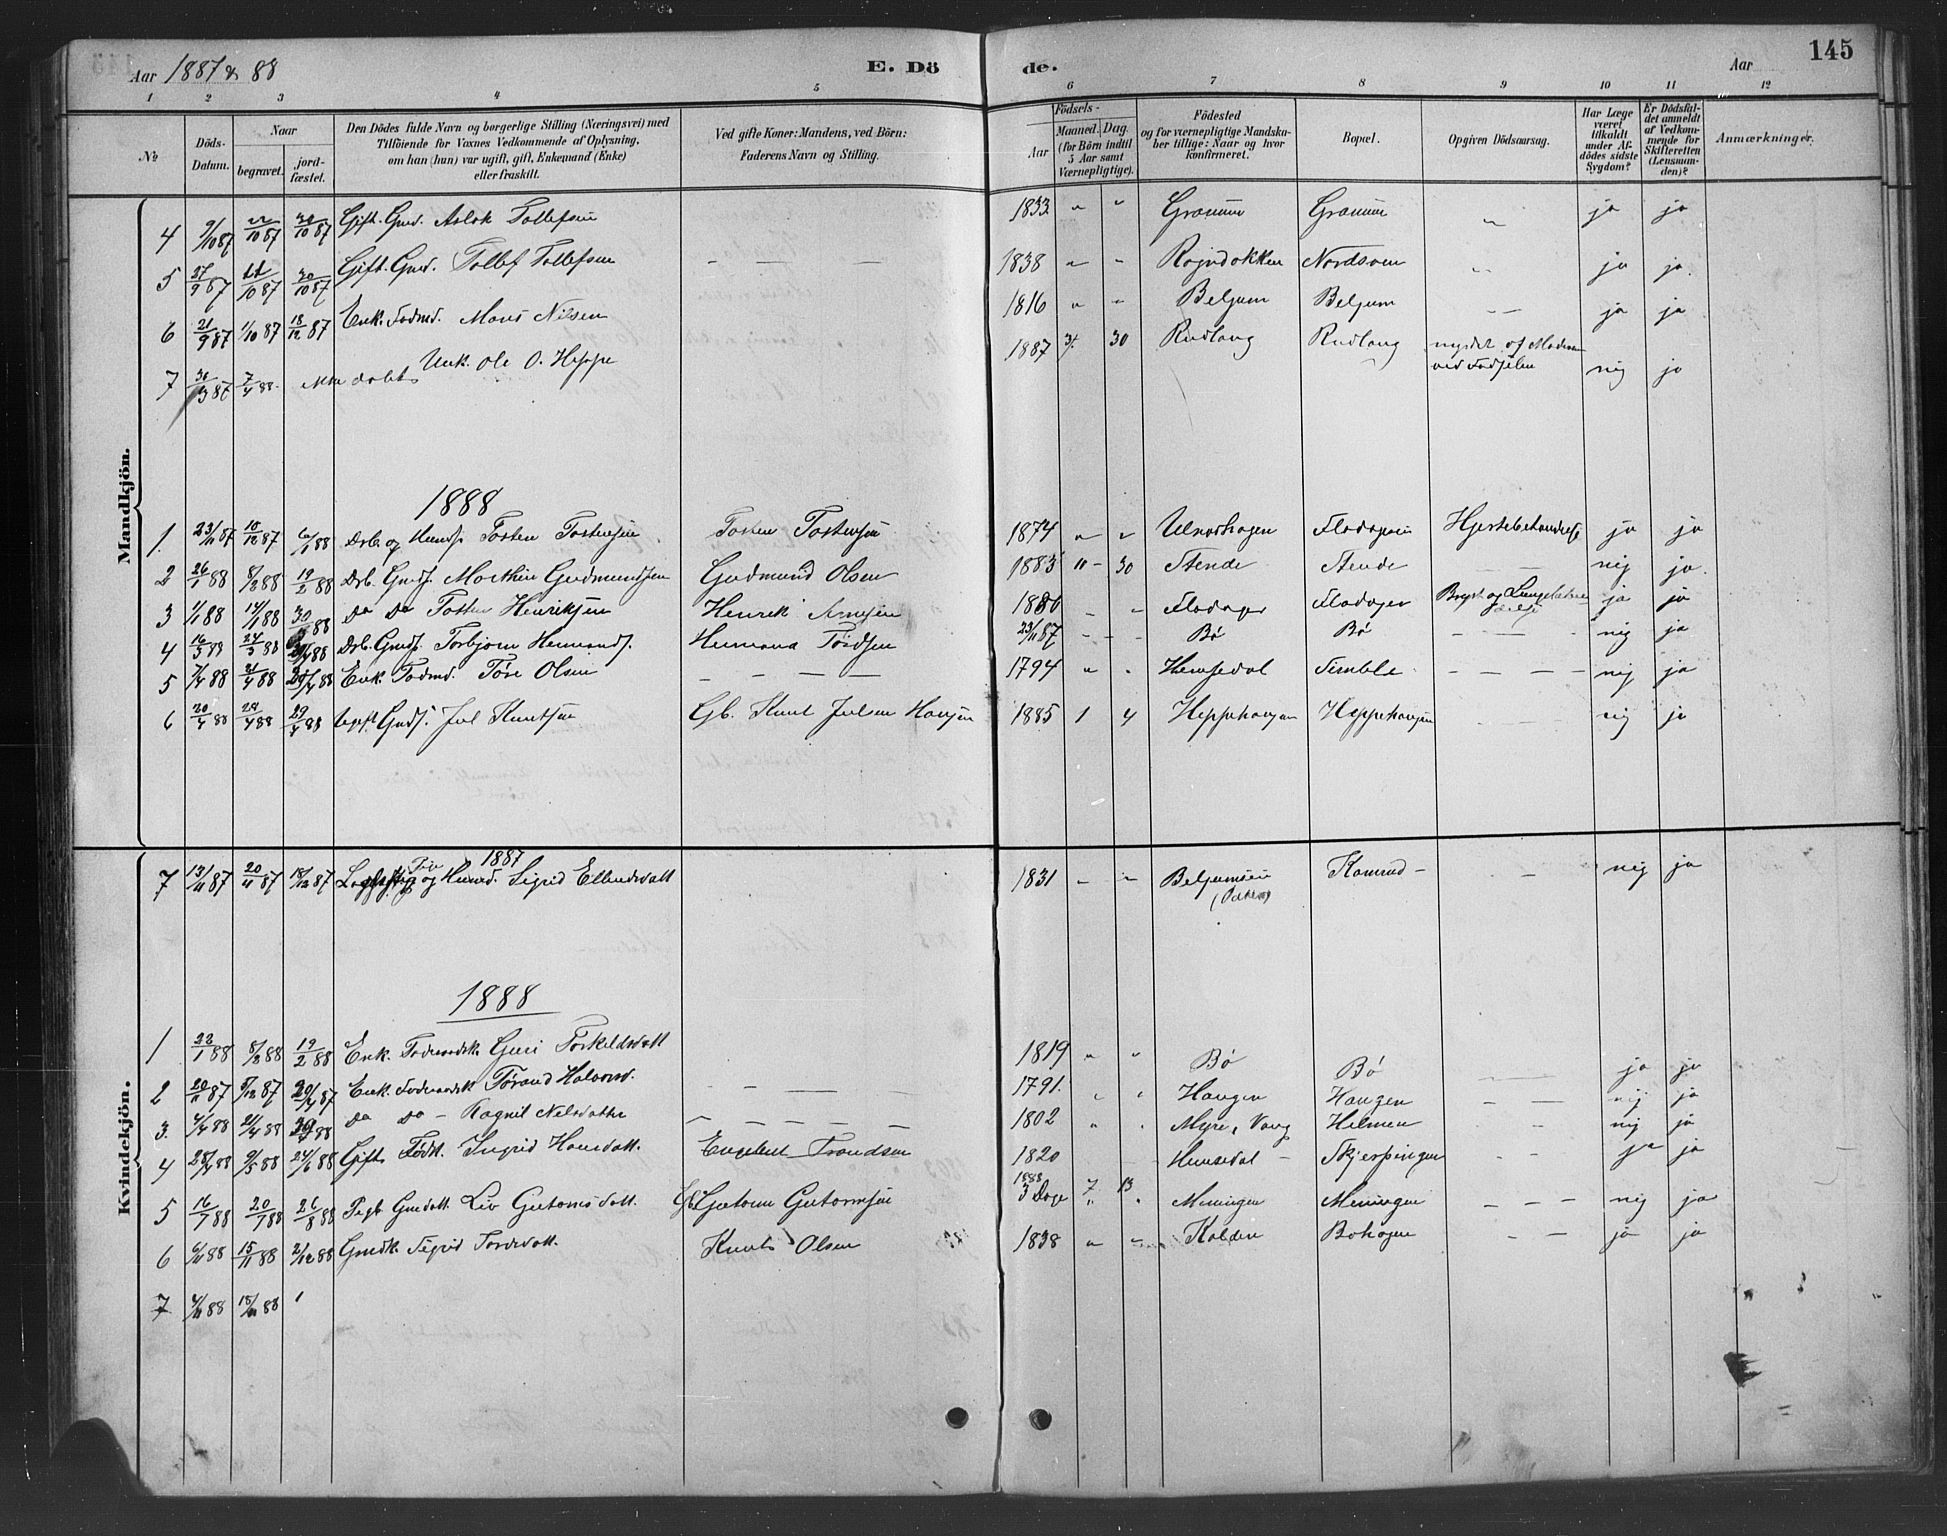 Aar 1887 & 88 E. Dö de. Aar 145
1 2 3 4 5 6 7 8 9 10 11 12
No
Döds-Datum.
Naar begravet. jordfæstet.
Den Dödes fulde Navn og borgerlige Stilling (Næringsvei) med Tilföiende for Voxnes Vedkommende af Oplysning, om han (hun) var ugift, gift, Enkemand (Enke) eller fraskilt.
Ved gifte Koner: Mandens, ved Börn: Faderens Navn og Stilling.
Födsels-
Aar Maaned. Dag. (for Börn indtil 5 Aar samt Værnepligtige).
Födested og for værnepligtige Mandskaber tillige: Naar og hvor konfirmeret.
Bopæl.
Opgiven Dödsaarsag.
Har Læge været tilkaldt under Afdödes sidste Sygdom?
Er Dödsfaldet anmeldt af Vedkommende for Skifteretten (Lensmanden)?
Anmærkninger.
Mandkjön.
4 9/10 87 22/10 87 30/10 87 Gift. Gmd. Aslak Tollefsen 1833 " " ja ja
5 27/9 87 30/10 87 Gift. Gmd. Tollef Tollefsen – – – – 1838 " " Nordsven ja ja.
6 21/9 87 1/10 87 18/12 87 Enk. Fodmd. Mons Nilsen 1816 " " Beljum Beljum – – ja ja
7 30/3 87 7/4 88 Ole O. Heppe 1887 3/. 30 Rudlang Rudlang af Moderen ved Fødselen nej ja
1888
1. 23/11 87 10/12 87 6/1 88 Drb. og Huusm. Tosten Tostensen Tosten Tostensen 1874 " " Ulnæshagen Flodagern ja ja
2 26/1 88 8/2 88 19/2 88 Drb. Gmds. Mathias Gudmundsen Gudmund Olsen 1883 11 – 30 Stende Stende – – nej ja.
3 1/1 88 14/1 88 30/ 88 do do Tosten Henriksen Henrik Arnesen 1886 " Flodager Flodager Bryst og ja ja
4 16/3 88 24/3 88 88 Drb. Gmds. Torbjørn Hermunds. Hermund Tordsen 23/11 87 – – – Bö Bö – – – nej ja
5 7/4 88 21/4 88 29/4 88 Enk. Fodmd. Tore Olsen – – – – 1794 " " Hemsedal Timble – – – – nej ja
6 20/4 88 28/4 88 29/4 88 Gmds. Jul Knutsen Gb. Knut Julsen Haugen 1885 1 4 Heppehaugen Heppehaugen – – – nej ja
Kvindekjön.
1887
7 13/11 87 20/11 87 18/12 87 Pige og Huusd. Sigrid Ellendsdatt 1831 – – Beljumseie Kamrud – – nej ja
1888
1 22/1 88 8/2 88 19/2 88 Enk. Föderaadsk. Guri Torkildsdatt 1819 " " Bö Bö ja ja
2 20/11 87 5/12 87 87 Enk. Föderaadsk Torand Halvorsd. – – – – 1791. " " Haugen Haugen – – nej ja
3. 4/4 88 21/4 88 88 do do – Ragnil Nelsdatter – – – – 1802 " " Myre, Vang Helmen nej ja
4 28/4 88 9/5 88 24/6 88 Gift Födt. Ingrid Hansdatt. Engebret Trondsen 1820 Hemsedal – Skjerpingen ja ja
5 16/7 88 20/7 88 26/8 88 Liv Gutormsdatt. Gb. Gutorm Gutormsen 1888 3 Dage 7 13 Meningen Meningen – – – nej ja
6 6/11 88 15/11 88 2/12 88 Gmdk. Sigrid Tordsdatt. Knut Olsen 1838 " " Kolden Bohagen – – ja ja
7 4/11 88 18/11 88